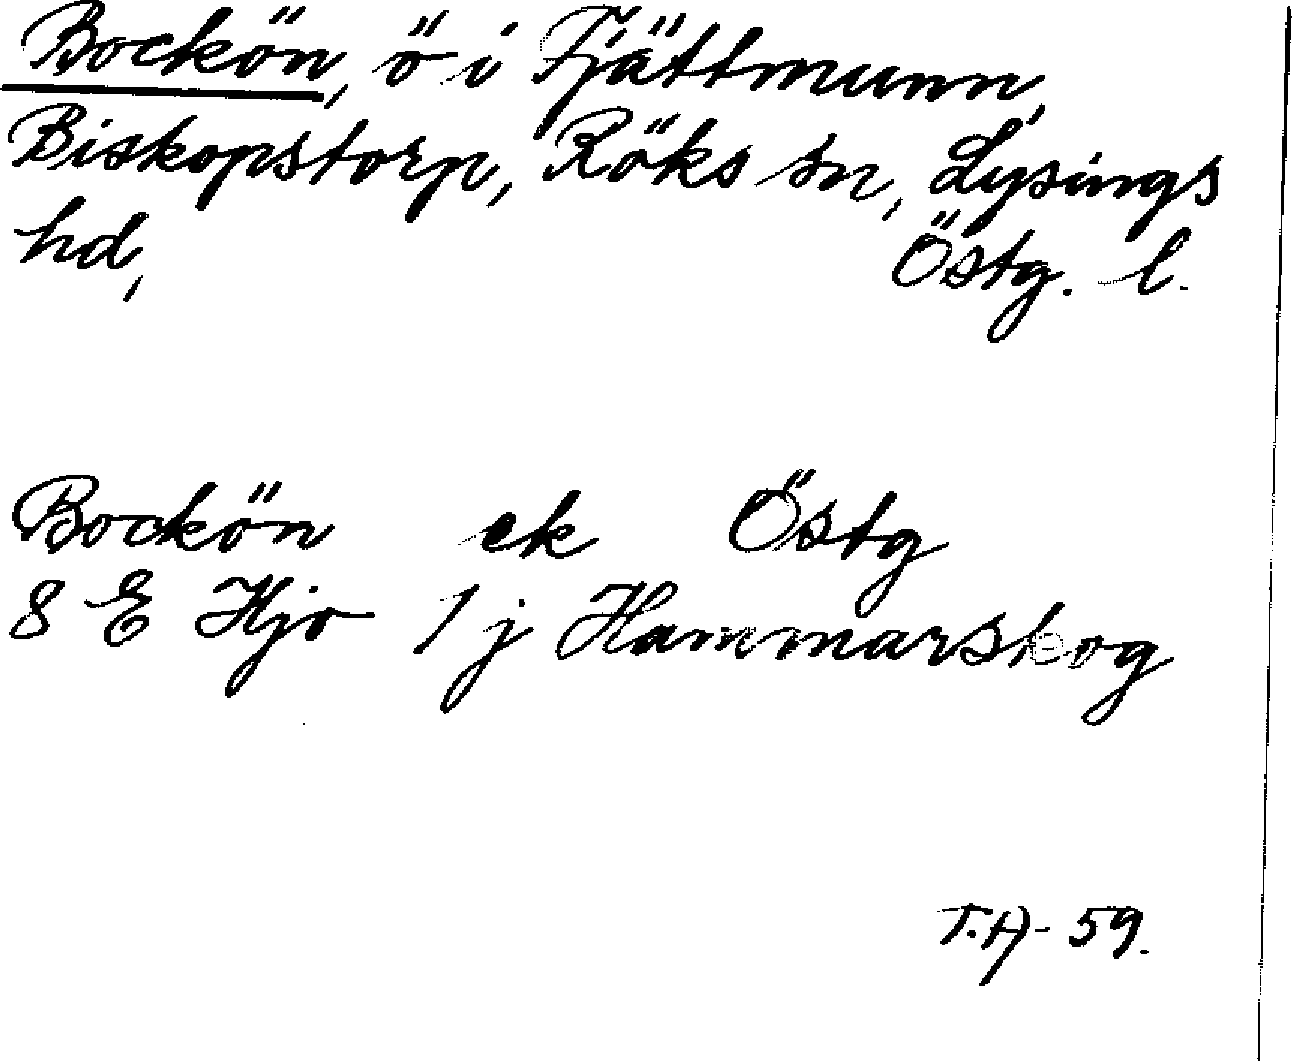 Bockön, ö i Fjättmunn,
Biskopstorp, Röks sn, Lysings
hd, Östg. l.
Bockön ek Östg
8 E Hjo 1 j Hammarskog
T.A - 59.